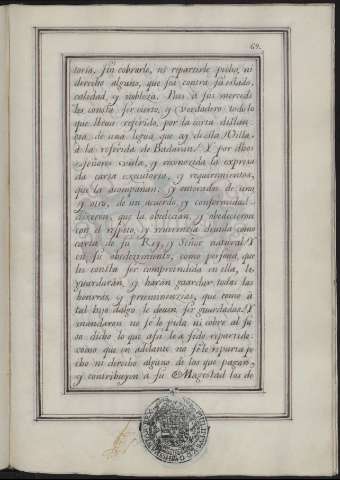 69.
toria, sin cobrarle, ni repartirle pecho, ni
derecho alguno, que sea contra su estado,
calidad, y nobleza. Pues à sus mercedes
les consta ser cierto, y verdadero todo lo
que lleua referido, por la corta distan-
zia de una legua que ay desta Villa,
à la referida de Badaran. Y por dhos
señores vista, y reconozida la expresa
da carta executoria, y requirimientos,
que la acompañan: y enterados de uno
y otro, de un acuerdo, y conformidad
dixeron, que la obedecian, y obedecieron
con el respeto, y reuerencia deuida como
carta de su Rey, y Señor natural. Y
en su obedezimiento, como persona, que
les consta ser comprendida en ella, le
guardarán, y harán guardar todas las
honrras, y preeminenzias, que como à
tal hijo dalgo le deuen ser guardadas. Y
mandaron no se le pida ni cobre al su
so dicho lo que assi le a sido repartido:
como que en adelante no se le reparta pe
cho ni derecho alguno de los que pagan,
y contribuyen à su Magestad los de